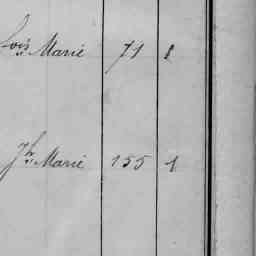 fois Marie 71 1
Jh Marie 155 1